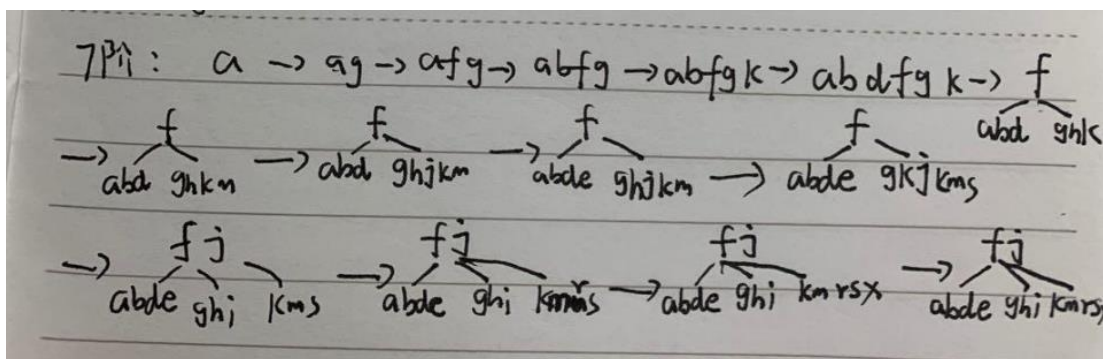 7阶: a → ag → afg → abfg → abfgk → abdfgk → f
abd ghk
→ f → f → f → f
abd ghkm abd ghjkm abde ghjkm abde gkjkms
→ fj → fj → fj → fj
abde ghi kms abde ghi abde ghi kmrsx abde ghi kmrs